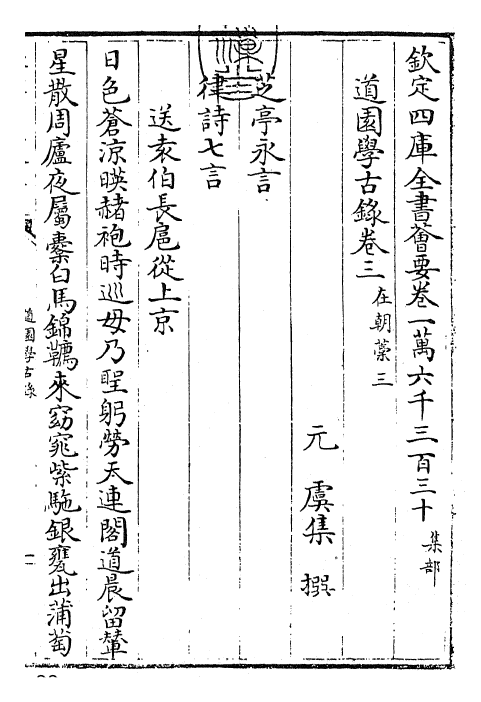 欽定四庫全書薈要卷一萬六千三百三十 集部
道園學古錄卷三 在朝藁三
元 虞集 撰
芝亭永言
律詩七言
送袁伯長扈從上京
日色蒼涼暎赭袍時巡毋乃聖躬勞天連閣道晨留輦
星散周廬夜屬櫜白馬錦韉來窈窕紫駞銀甕出蒲萄
道園學古錄
一